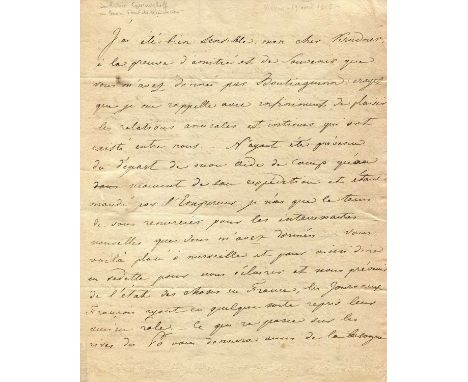 Vienne - 19 avril 1815 -
J'ai été bien sensible, mon cher
à la preuve d'amitié et de souvenir que
vous m'avez donnée par Boutiaguine. croyez
que je me rappelle avec infiniment de plaisir
les relations amicales et intimes qui ont
existé entre nous. N'ayant été prévenu
du départ de mon aide de camp qu'au
moment de son expédition et étant
mandé par l'Empereur je n'ai que le tems
de vous remercier pour les intéressantes
nouvelles que vous m'avez données vous
voilà placé à merveille et pour ainsi dire
en vedette pour nous éclairer et nous prévenir
de l'état des choses en France, les Journaux
Français ayant en quelque sorte repris leur
ancien role. Ce qui se passe sur les
rives du Pô vous donnera aussi de la besogne